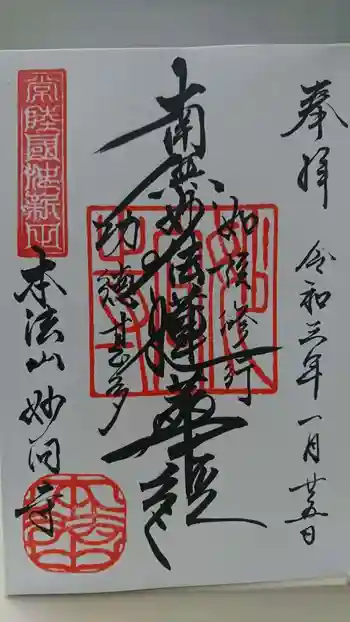 奉拝
令和三年一月廿五日
如揲修行
南無妙法蓮華経
功徳甚多
常陸國
本法山妙同寺